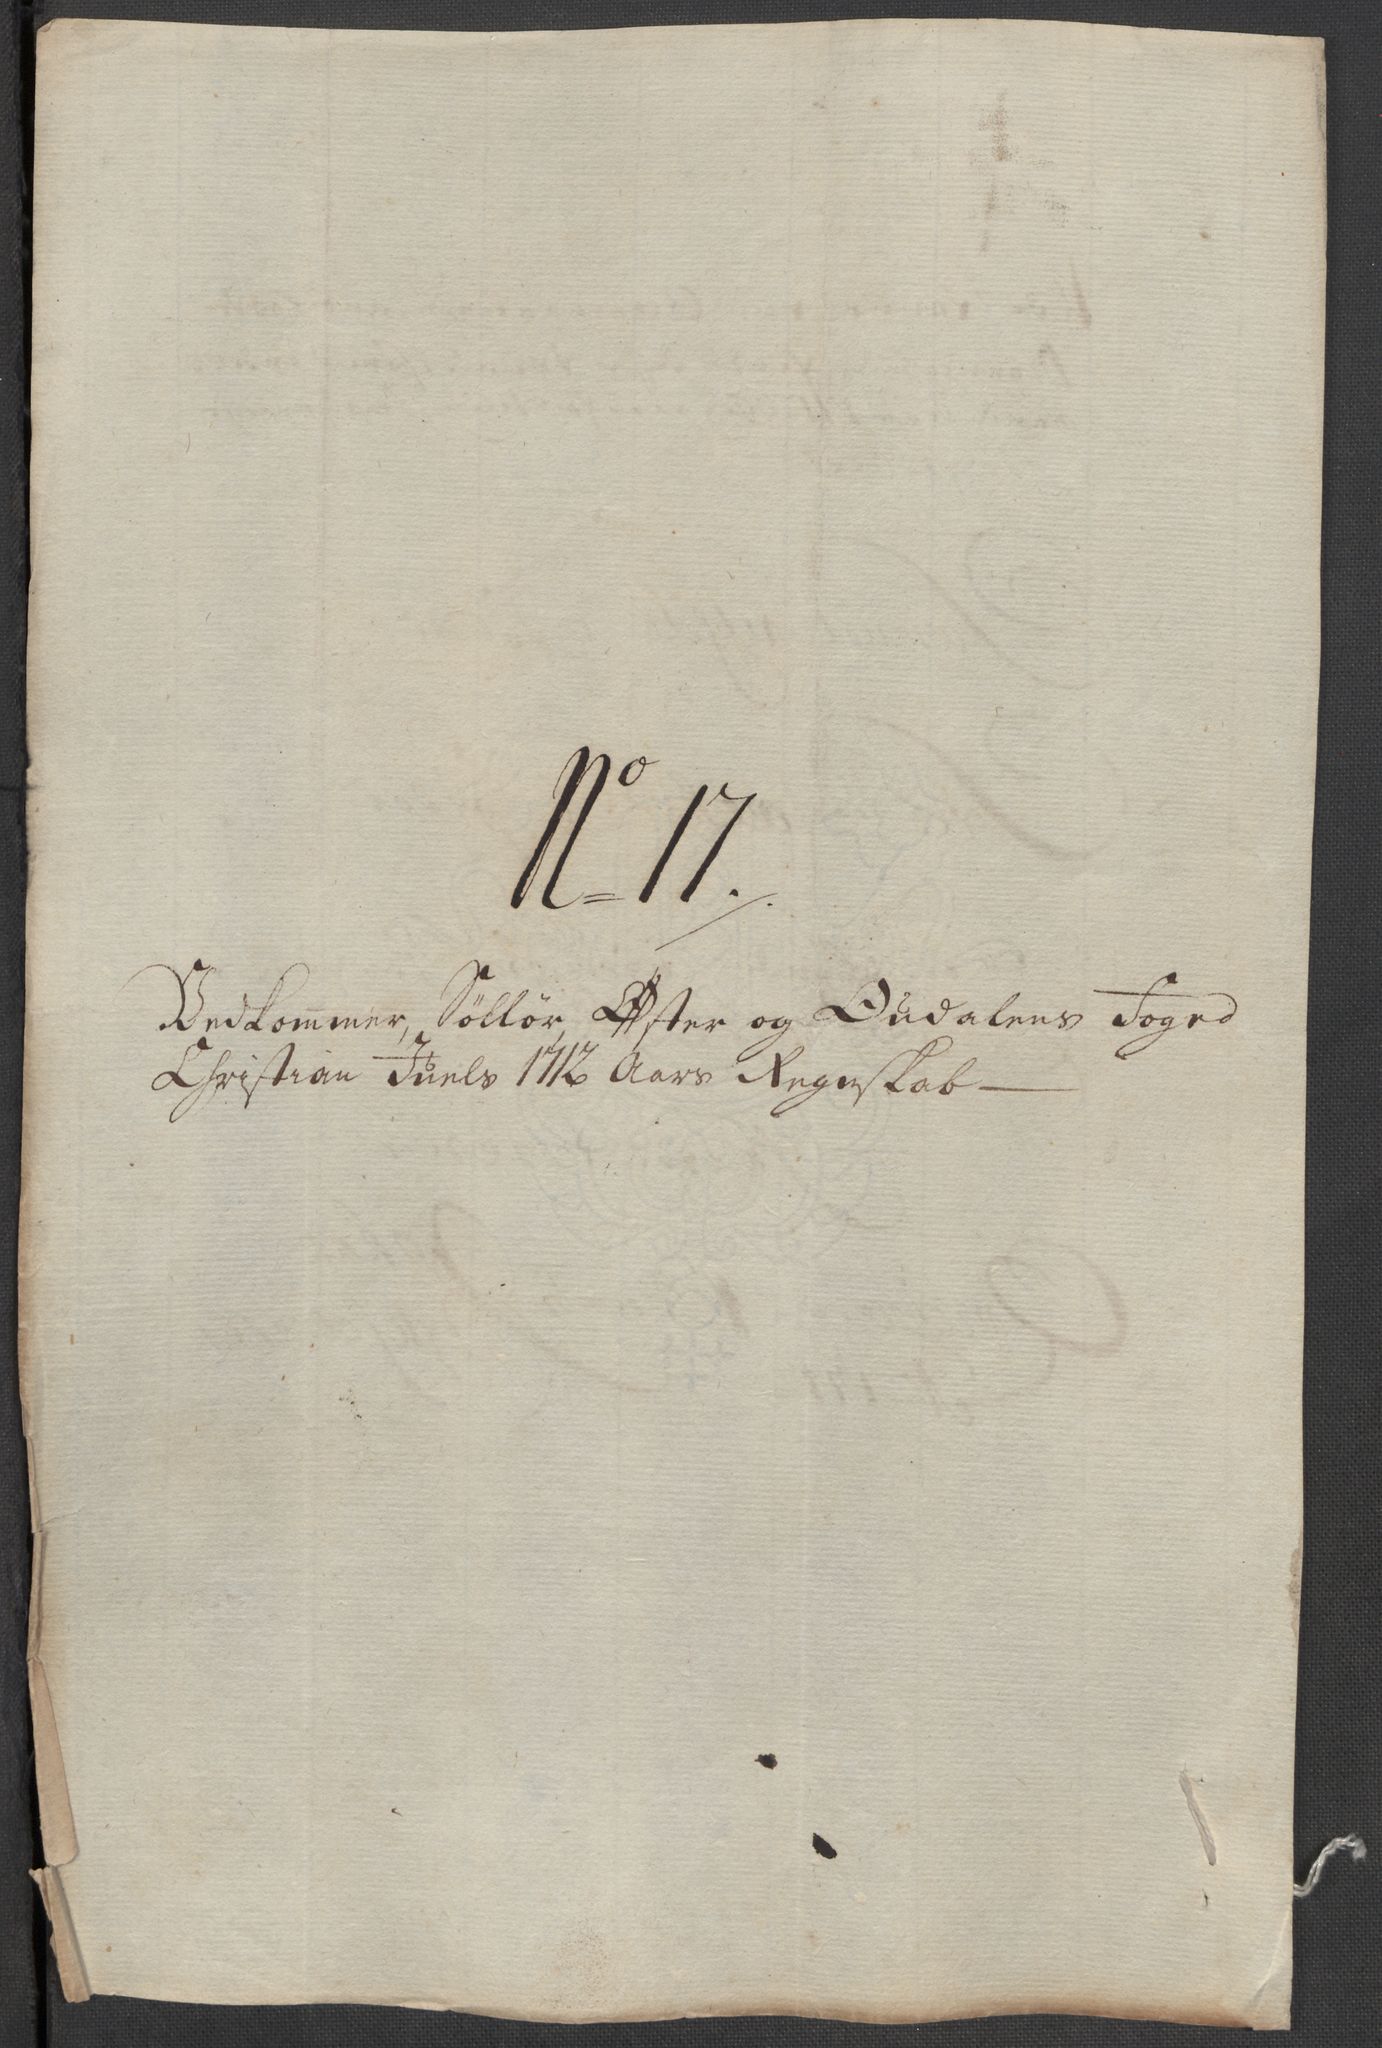 No 17.
Vedkommer, Sollör, Øster og Oudalens Foged
Christian Juels 1712 Aars Regnskab